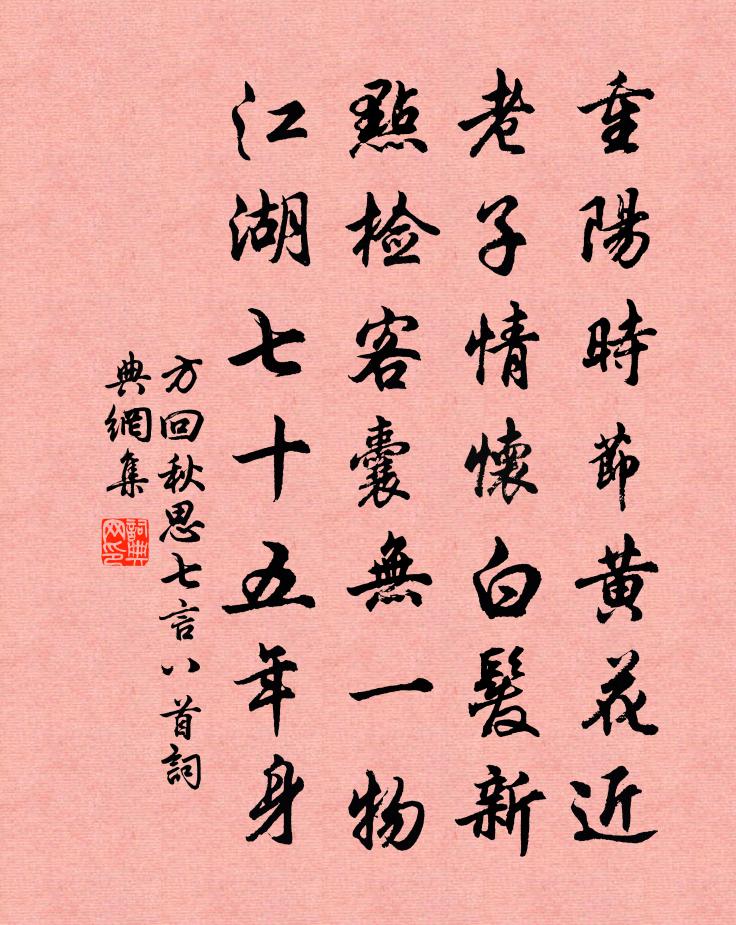 重陽時節黄花近
老子情懷白髮新
點檢客囊無一物
江湖七十五年身
方回秋思七言八首詞
典網集
詞典網印